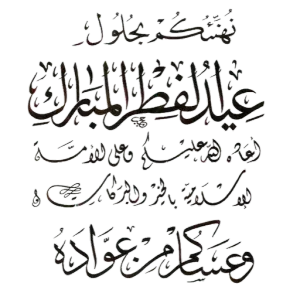 نُهَنِّئُكُم بِحُلُولِ
عِيدُ الفِطْرِ المُبَارَكِ
أعاده الله عليكم وعلى الأمة
الإسلامية بالخير والبركات
وعساكم من عوّاده